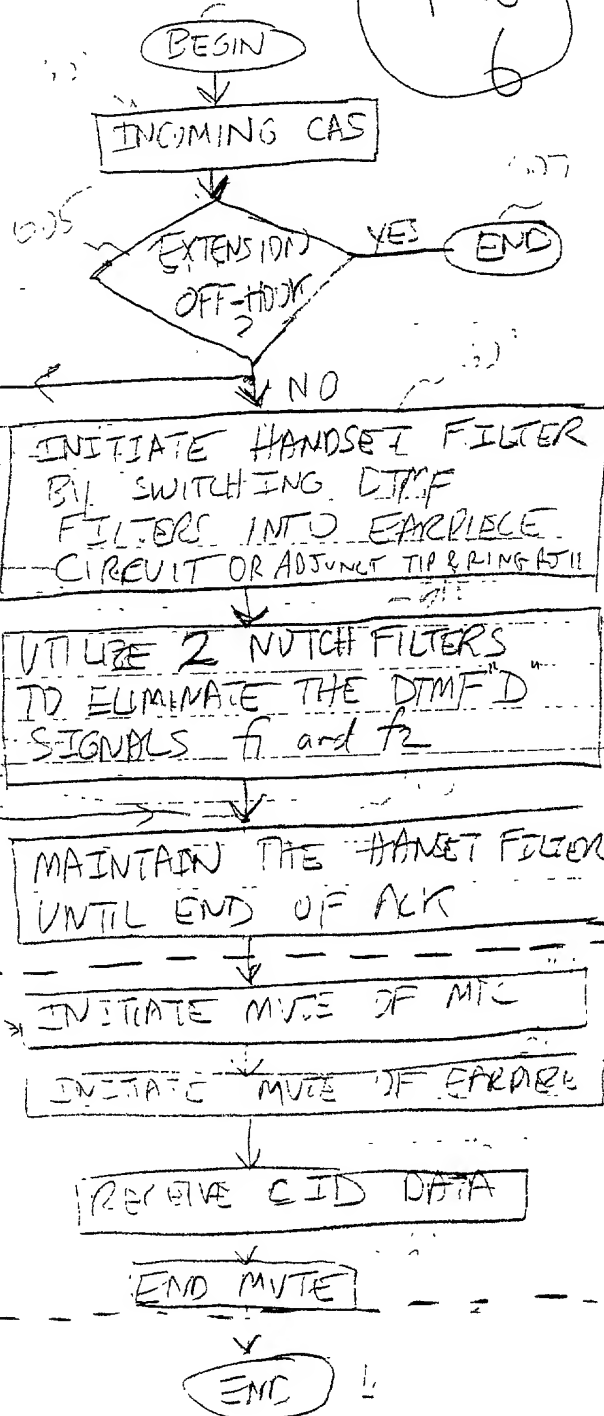 6
BEGIN
INCOMING CAS
EXTENSION
OFF-HOOK
?
YES
END
NO
INITIATE HANDSET FILTER
BY SWITCHING DTMF
FILTERS INTO EARPIECE
CIRCUIT OR ADJUNCT TIP & RING RJ11
UTILIZE 2 NOTCH FILTERS
TO ELIMINATE THE DTMF "D"
SIGNALS f1 and f2
MAINTAIN THE HANSET FILTER
UNTIL END OF ACK
INITIATE MUTE OF MIC
INITIATE MUTE OF EARPIECE
RECEIVE CID DATA
END MUTE
END